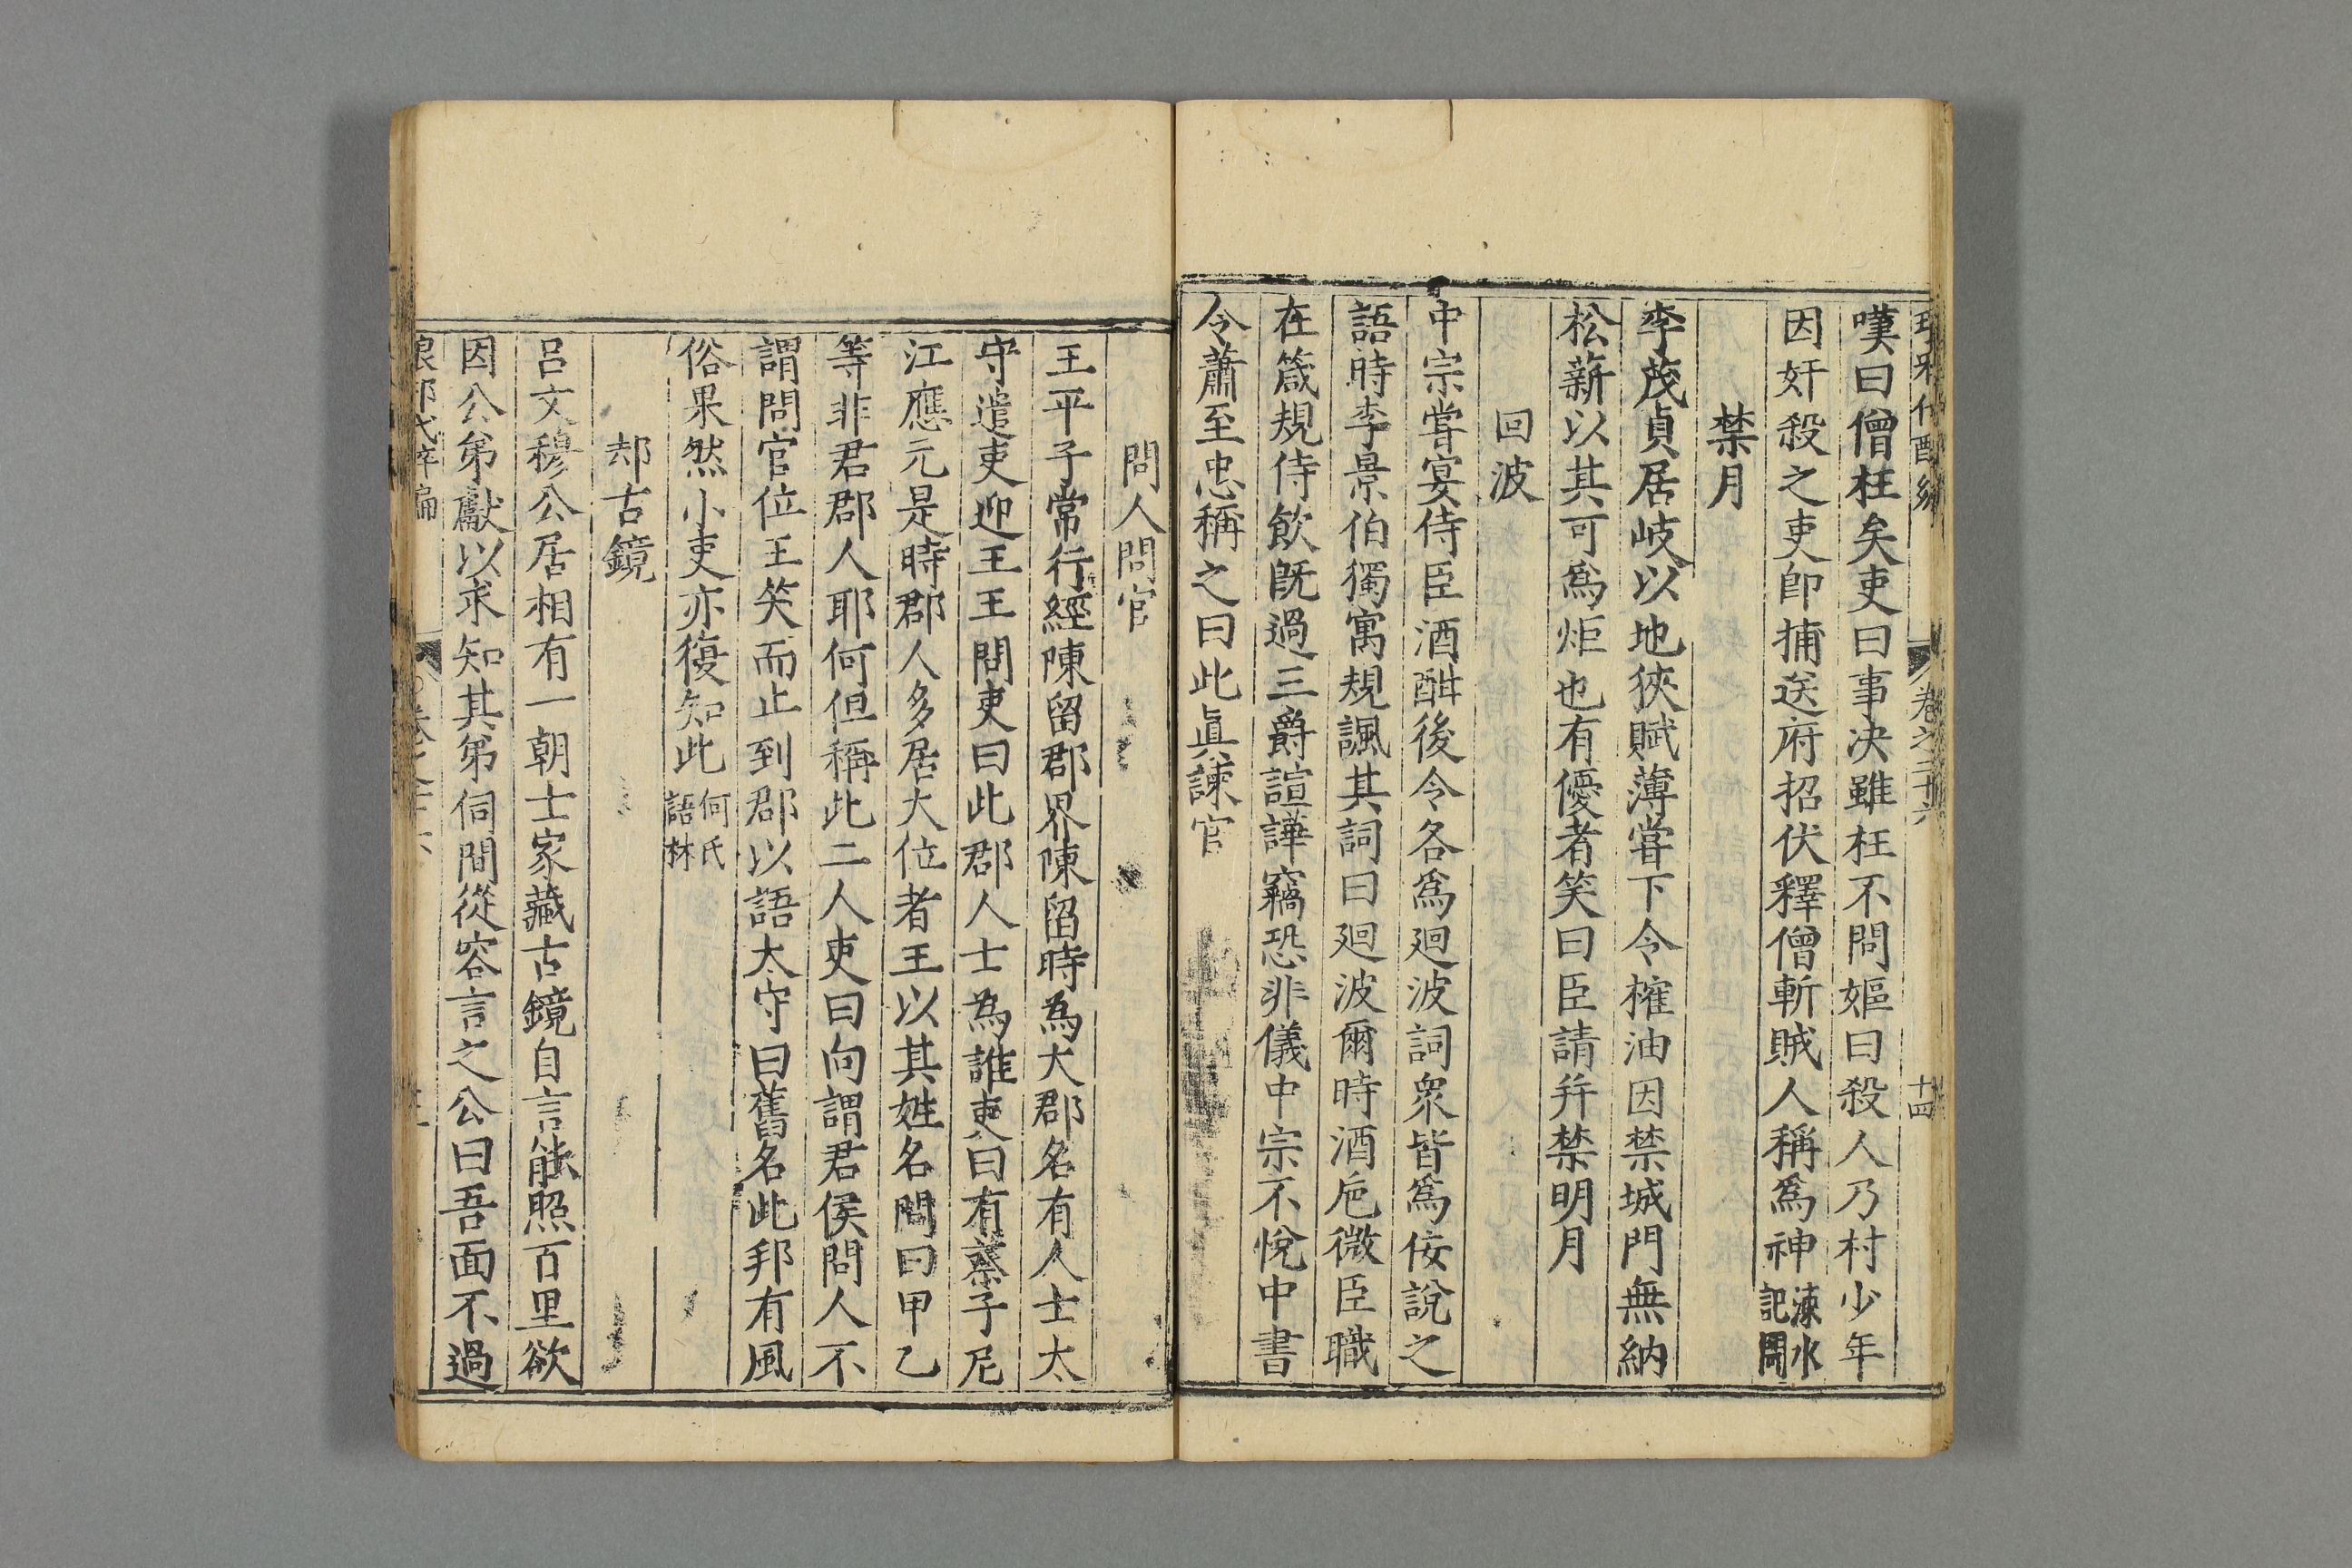 卷之三十六
十四
嘆曰僧枉矣吏曰事决雖枉不問嫗曰殺人乃村少年
因奸殺之吏卽捕送府招伏釋僧斬賊人稱爲神涑水記聞
禁月
李茂貞居岐以地狹賦薄甞下令榷油因禁城門無納
松薪以其可爲炬也有優者笑曰臣請幷禁明月
回波
中宗甞宴侍臣酒酣後令各爲廻波詞衆皆爲佞說之
語時李景伯獨寓規諷其詞曰廻波爾時酒巵微臣職
在箴規侍飲旣過三爵諠譁竊恐非儀中宗不悅中書
令蕭至忠稱之曰此眞諫官
問人問官
王平子常行經陳留郡界陳留時為大郡名有人士太
守遣吏迎王王問吏曰此郡人士為誰吏曰有蔡子尼
江應元是時郡人多居大位者王以其姓名問曰甲乙
等非君郡人耶何但稱此二人吏曰向謂君侯問人不
謂問官位王笑而止到郡以語太守曰舊名此邦有風
俗果然小吏亦復知此何氏語林
却古鏡
呂文穆公居相有一朝士家藏古鏡自言能照百里欲
因公弟獻以求知其弟伺間從容言之公曰吾面不過